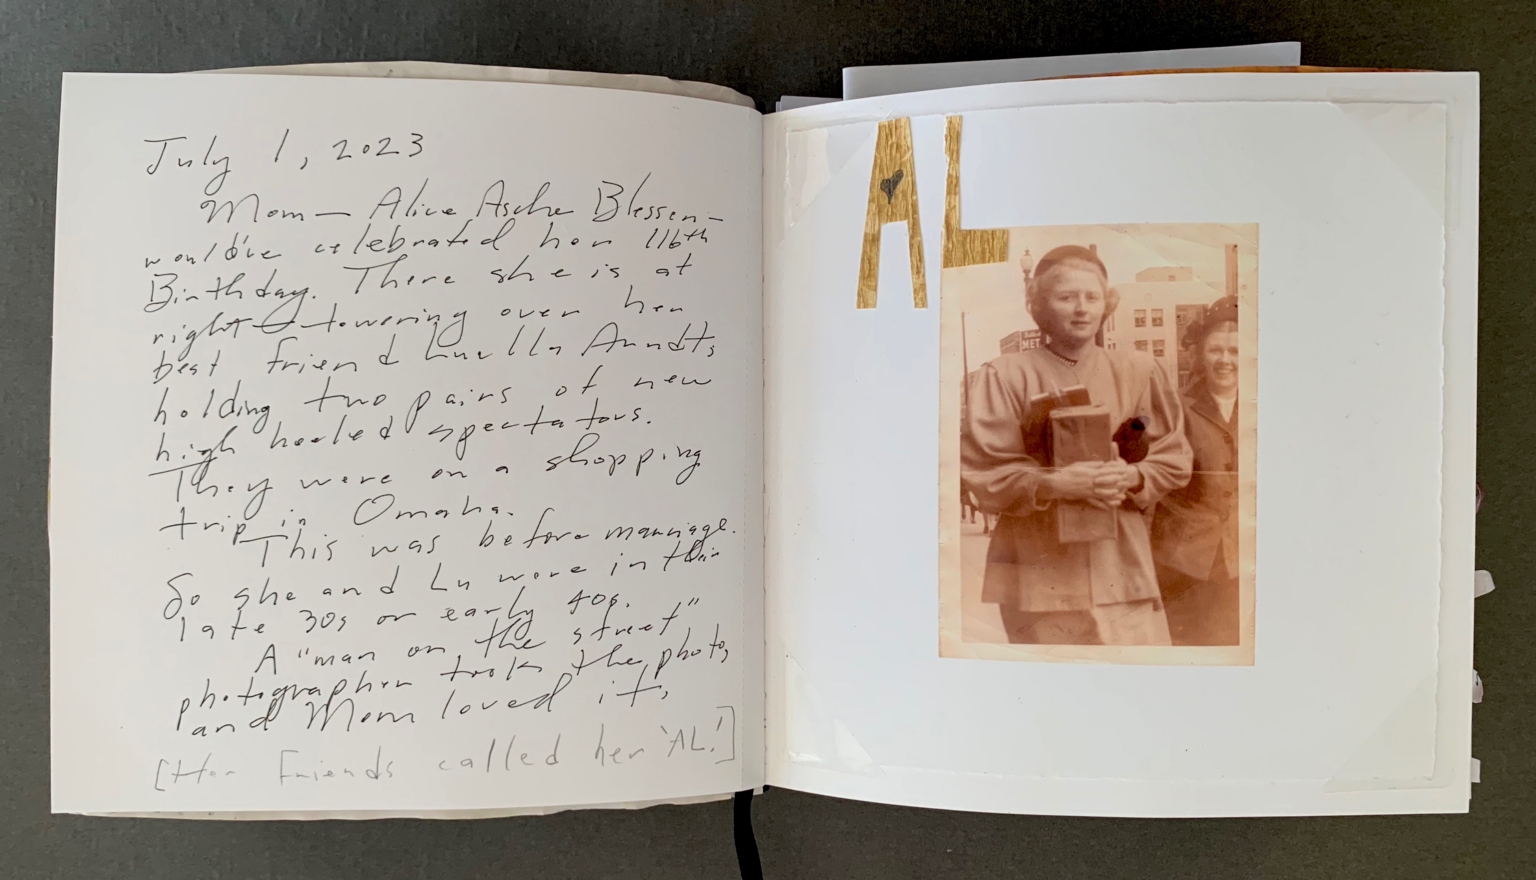 July 1, 2023
Mom — Alice Asche Blessen —
would've celebrated her 116th
Birthday. There she is at
right — towering over her
best friend Luella Arndt,
holding two pairs of new
high heeled spectators.
They were on a shopping
trip in Omaha.
This was before marriage.
So she and Lu were in their
late 30s or early 40s.
A "man on the street"
photographer took the photo,
and Mom loved it.
[Her Friends called her 'AL.']
AL
MET